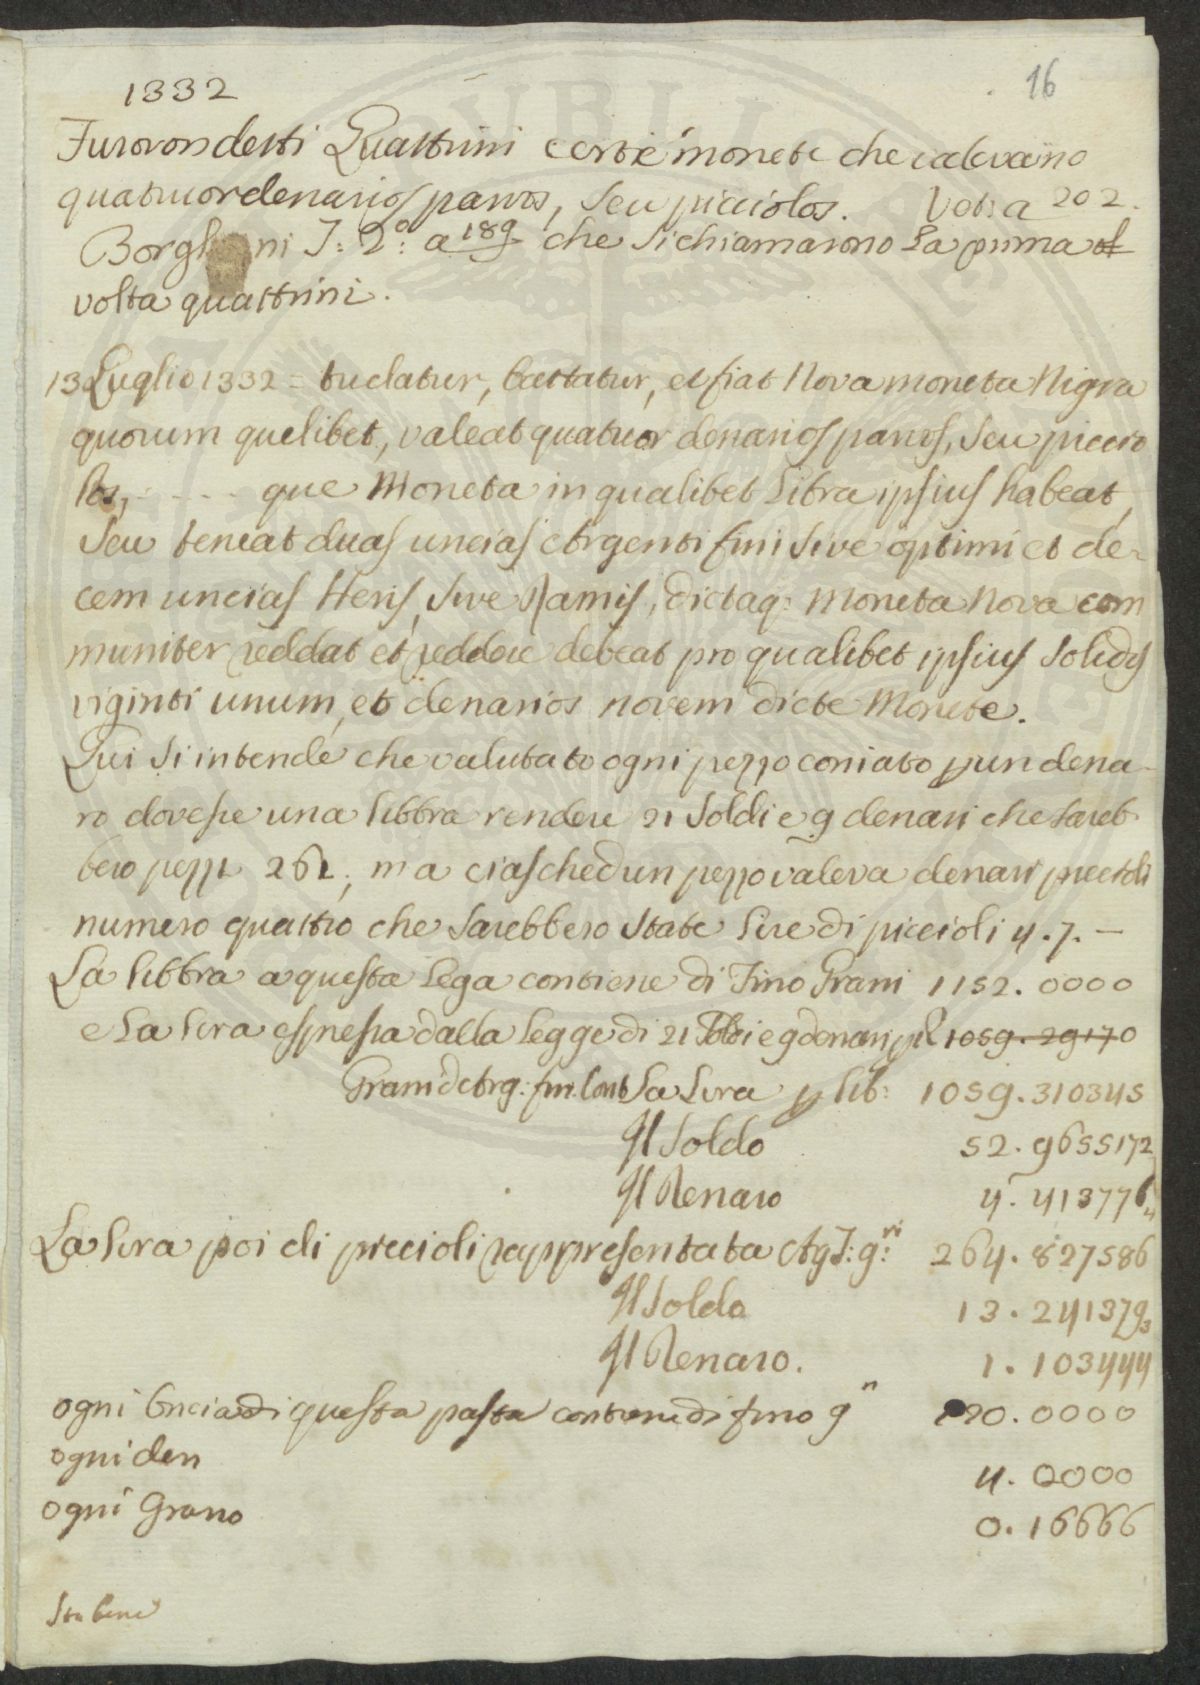 16
1332
Furoron detti Quattrini certe monete che valevano
quatuor denarios parvos, seu picciolos. Vetra 202.
Borghini T: 2º: a 189 che si chiamarono la prima
volta quattrini.
13 Luglio 1332 = cudatur, battatur, et fiat Nova moneta Nigra
quorum quelibet, valeat quatuor denarios parvos, seu piccio
los, - - - - que Moneta in qualibet Libra ipsius habeat,
seu teneat duas uncias Argenti fini sive optimi et de-
cem uncias Heris, sive Ramis, dictaq: Moneta Nova com
muniter reddat et reddere debeat pro qualibet ipsius solidos
viginti unum, et denarios novem dicte Monete.
Qui si intende che valutato ogni pezzo coniato p un dena-
ro dovesse una libbra rendere 21 soldi e 9 denari che sareb
bero pezzi 261, ma ciaschedun pezzo valeva denari piccioli
numero quattro che sarebbero state lire di piccioli 4. 7. -
La libbra a questa Lega contiene di Fino Grani 1152. 0000
e la lira espressa dalla Legge di 21 soldi e 9 denari p l 1059. 29170
Grani d'Arg: fin. Cont La Lira p lib: 1059. 310345
Il Soldo 52. 9655172
Il Denaro 4. 413776
La lira poi di piccioli rappresentata Ag F: g:ni 264. 827586
Il Soldo 13. 2413793
Il Denaro. 1. 103444
ogni Oncia di questa pasta contiene di fino gn 90. 0000
ogni den 4. 0000
ogni Grano 0. 16666
Sta bene